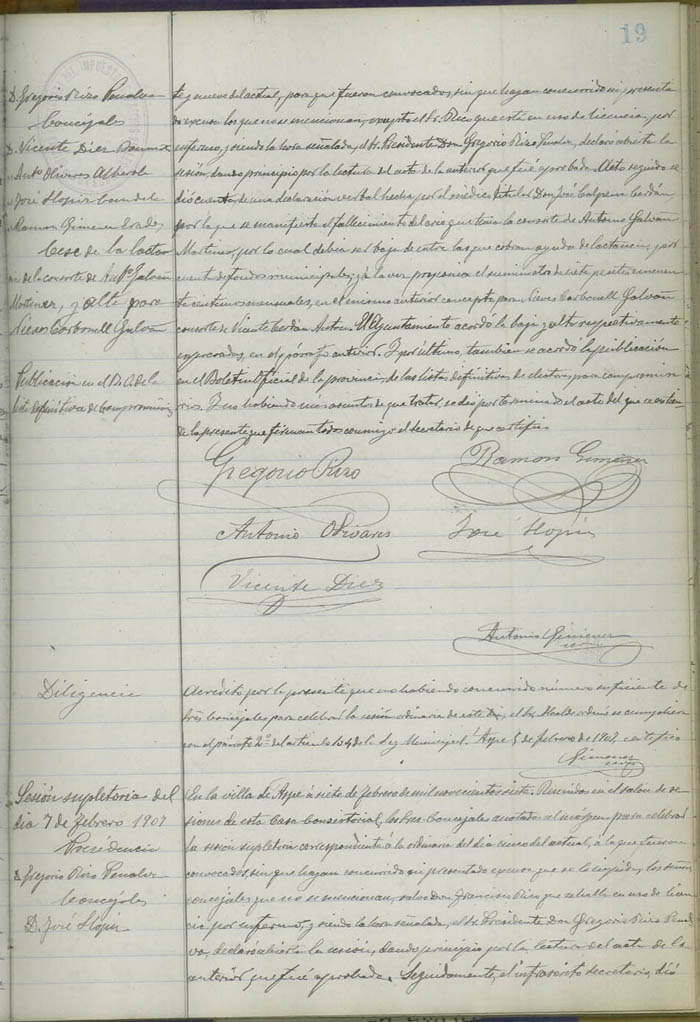 19
D. Gregorio Rizo Penalva
Concejales
D. Vicente Díez
" Antº Olivares Alberola
" José Llopis
" Ramon Gimenez
Cese de la lactan
cia de la consorte de Antº Galvañ
Martinez, y alta para
Nieves Carbonell Galvañ
Publicación en el B. O. de la
lista definitiva de compromisarios
te y nueve del actual, para que fueron convocados, sin que hayan concurrido ni presenta
do excusa los que no se mencionan, excepto el Sr. Rico que está en uso de licencia, por
enfermo, y siendo la hora señalada, el Sr. Presidente Don Gregorio Rizo Penalva, declaró abierta la
sesión, dando principio por la lectura del acta de la anterior que fué aprobada. Acto seguido se
dió cuenta, de una declaración verbal hecha por el médico titular Don José Calpena Cerdán,
por la que se manifiesta el fallecimiento del niño que tenía la consorte de Antonio Galvañ
Martinez, por lo cual debía ser baja de entre las que cobran ayuda de lactancia, por
cuenta de fondos municipales, y á la vez, proponía el suministro de siete pesetas
céntimos mensuales, en el mismo anterior concepto para Nieves Carbonell Galvañ
consorte de Vicente Cerdán Antón. El Ayuntamiento acordó la baja y alta respectivamente
expresadas, en el párrafo anterior. Y por último, tambien se acordó la publicación
en el Boletin Oficial de la provincia, de las listas definitivas de electores, para compromisa
rios. Y no habiendo más asuntos de que tratar, se dió por terminado el acto del que se extien
de la presente que firman todos conmigo el secretario de que certifico.
Gregorio Rizo
Ramon Gimenez
Antonio Olivares
José Llopis
Vicente Díez
Antonio Gimenez
Diligencia
Acredito por la presente que no habiendo concurrido número suficiente de
Sres. Concejales para celebrar la sesión ordinaria de este día, el Sr. Alcalde ordenó se cumpliera
con el párrafo 2º del artículo 104 de la Ley Municipal. Aspe 5 de febrero de 1907, certifico
Gimenez
Sesión supletoria del
dia 7 de febrero 1907
Presidencia
D. Gregorio Rizo Penalva
Concejales
D. José Llopis
En la villa de Aspe á siete de febrero de mil novecientos siete. Reunidos en el salón de se
siones de esta Casa Consistorial, los Sres. Concejales anotados al márgen para celebrar
la sesión supletoria correspondiente á la ordinaria del dia cinco del actual, á la que fueron
convocados, sin que hayan concurrido ni presentado excusa que se lo impida, los señores
concejales que no se mencionan, salvo Don Francisco Rico que se halla en uso de licen
cia por enfermo, y siendo la hora señalada, el Sr. Presidente Don Gregorio Rizo Penal
va, declaró abierta la sesión, dando principio por la lectura del acta de la
anterior que fué aprobada. Seguidamente, el infrascrito secretario, dió